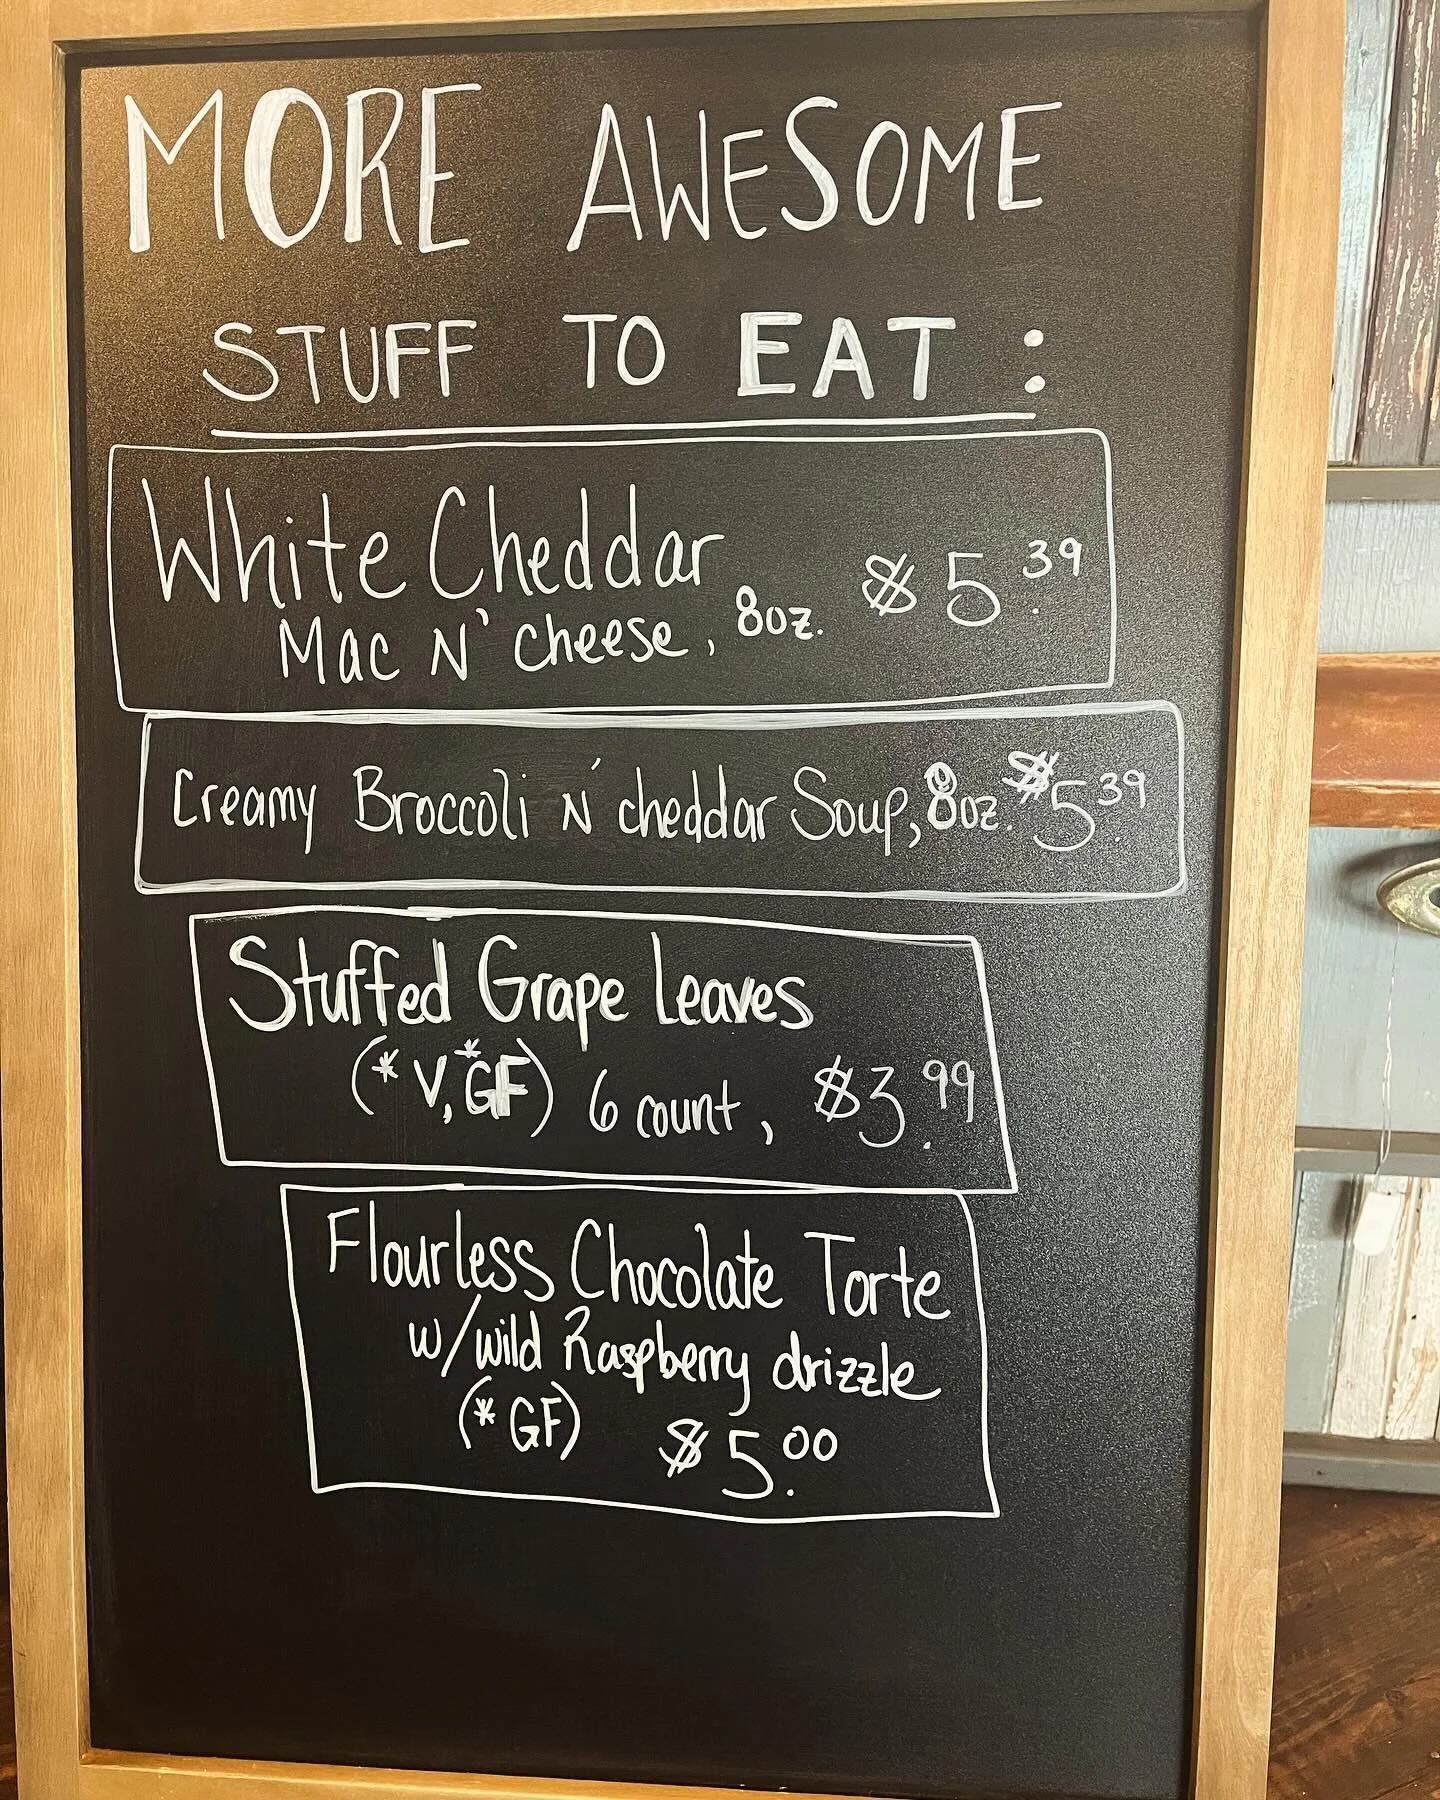 MORE AWESOME
STUFF TO EAT :
White Cheddar
Mac N' cheese, 8oz. $5.39
Creamy Broccoli N' cheddar Soup, 8oz. $5.39
Stuffed Grape Leaves
(*V, *GF) 6 count, $3.99
Flourless Chocolate Torte
w/wild Raspberry drizzle
(*GF) $5.00